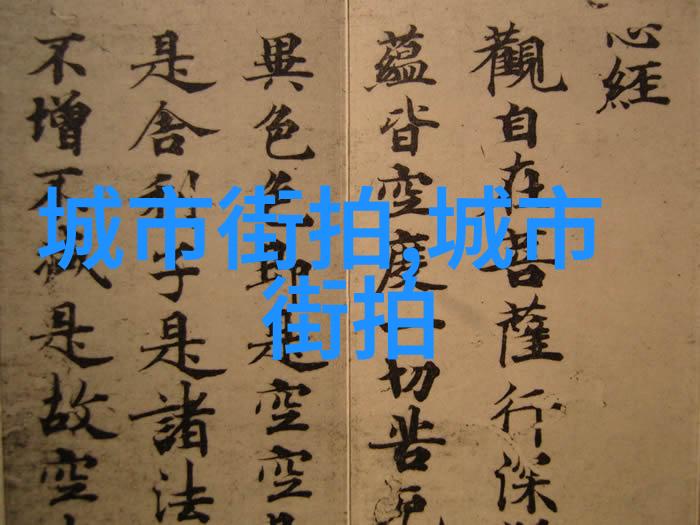 心經
觀自在菩薩行深
蘊皆空度一切苦厄
異色色即是空空
是舍利子是諸法
不增不減是故空
城市街拍,城市
街拍